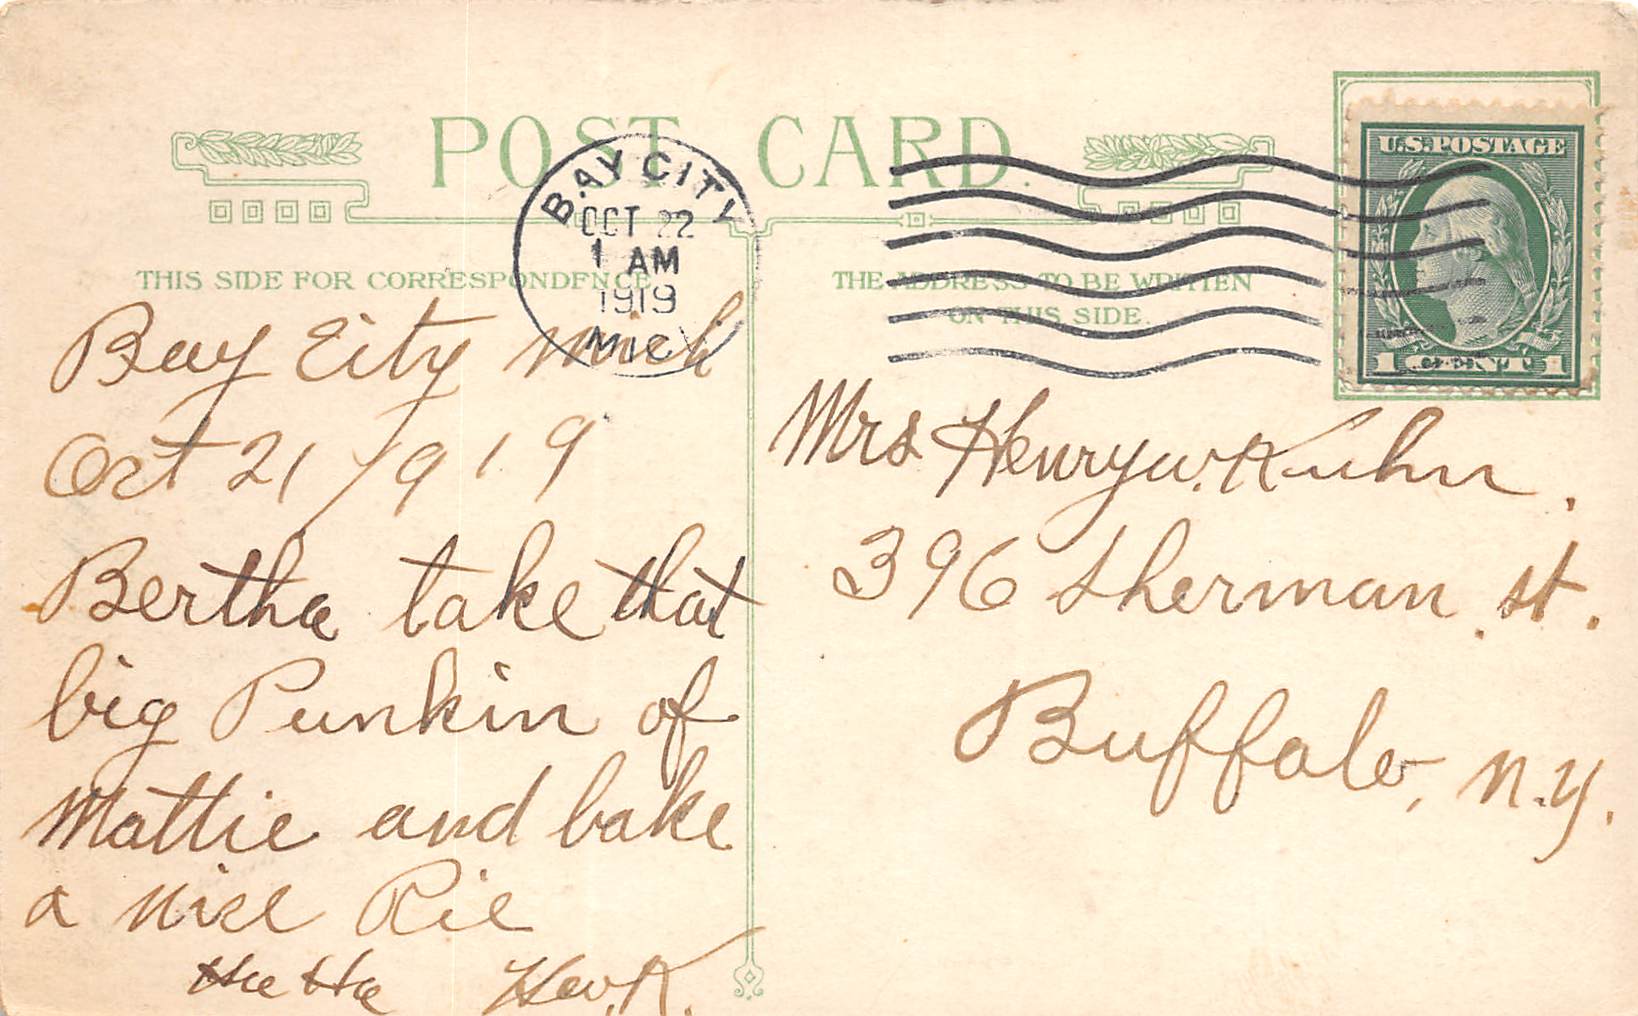 POST CARD.
BAY CITY
OCT 22
1 AM
1919
MICH
U.S. POSTAGE
1 CENT 1
THIS SIDE FOR CORRESPONDENCE
THE ADDRESS TO BE WRITTEN
ON THIS SIDE.
Bay City Mich
Oct 21/1919
Bertha take that
big Punkin of
Mattie and bake
a nise Pie
Ha Ha
Mrs Henry W. Kuhn.
396 Sherman St.
Buffalo, N.Y.